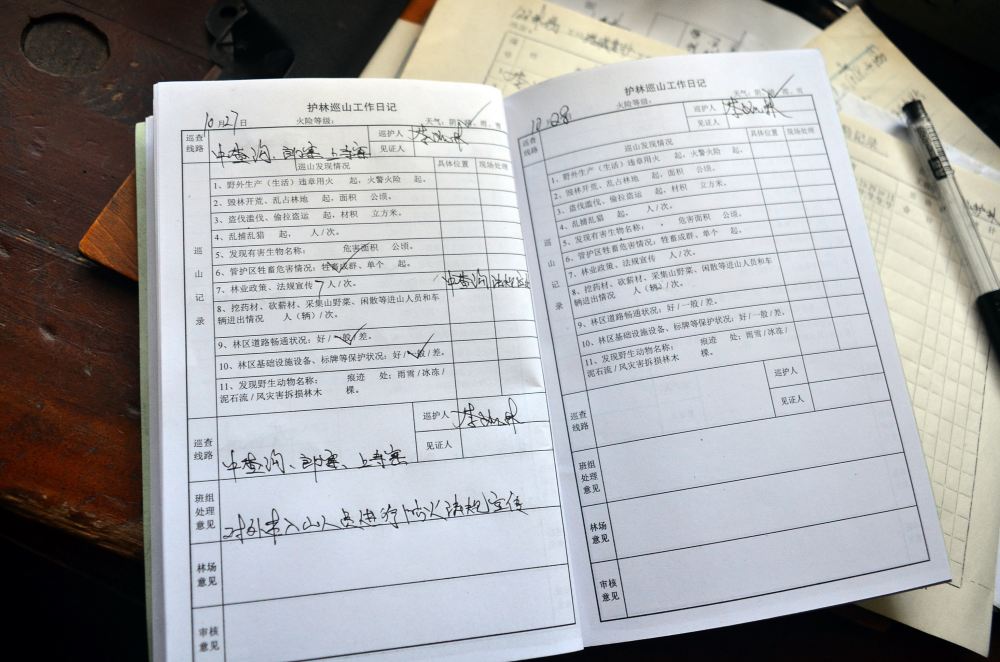 护林巡山工作日记
10月27日 火险等级: 天气:阴、晴、雨、雪
巡查线路 中查沟、郎寨、上寺寨 巡护人
见证人
巡山记录
巡山发现情况 具体位置 现场处理
1、野外生产（生活）违章用火 起，火警火险 起。
2、毁林开荒、乱占林地 起，面积 公顷。
3、盗伐滥伐、偷拉盗运 起，材积 立方米。
4、乱捕乱猎 起， 人/次。
5、发现有害生物名称： 危害面积 公顷。
6、管护区牲畜危害情况：牲畜成群、单个 起。
7、林业政策、法规宣传 7 人/次。 中查沟
8、挖药材、砍薪材、采集山野菜、闲散等进山人员和车
辆进出情况 人（辆）/次。
9、林区道路畅通状况：好/一般/差。
10、林区基础设施设备、标牌等保护状况：好/一般/差。
11、发现野生动物名称： 痕迹 处；雨雪/冰冻/
泥石流/风灾害拆损林木 棵。
巡查线路 中查沟、郎寨、上寺寨 巡护人
见证人
班组处理意见 对外来入山人员进行防火法规宣传
林场意见
审核意见
护林巡山工作日记
10.28 火险等级: 天气:阴、
巡查线路 巡护人
见证人
巡山记录
巡山发现情况 具体位置 现场处理
1、野外生产（生活）违章用火 起，火警火险 起。
2、毁林开荒、乱占林地 起，面积 公顷。
3、盗伐滥伐、偷拉盗运 起，材积 立方米。
4、乱捕乱猎 起， 人/次。
5、发现有害生物名称： 危害面积 公顷。
6、管护区牲畜危害情况：牲畜成群、单个 起。
7、林业政策、法规宣传 人/次。
8、挖药材、砍薪材、采集山野菜、闲散等进山人员和车
辆进出情况 人（辆）/次。
9、林区道路畅通状况：好/一般/差。
10、林区基础设施设备、标牌等保护状况：好/一般/差。
11、发现野生动物名称： 痕迹 处；雨雪/冰冻/
泥石流/风灾害拆损林木 棵。
巡查线路 巡护人
见证人
班组处理意见
林场意见
审核意见